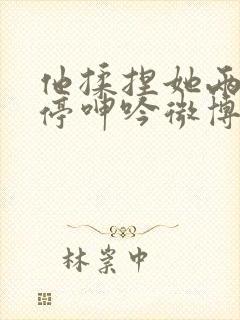 他揉捏她两
停呻吟微博
林崇中